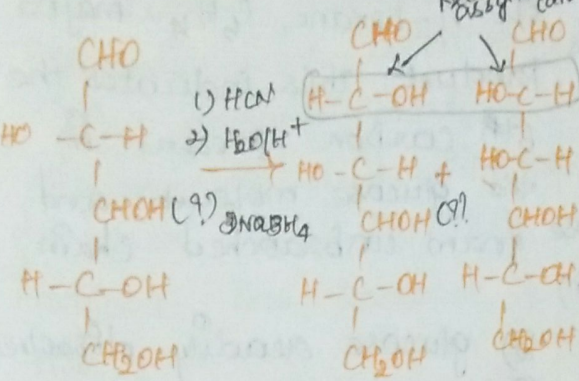 CHO
HO -C-H
CHOH(?)
H-C-OH
CH2OH
1) HCN
2) H2O/H+
3) NaBH4
CHO
H-C-OH
HO-C-H +
CHOH(?)
H-C-OH
CH2OH
CHO
HO-C-H
HO-C-H
CHOH
H-C-OH
CH2OH